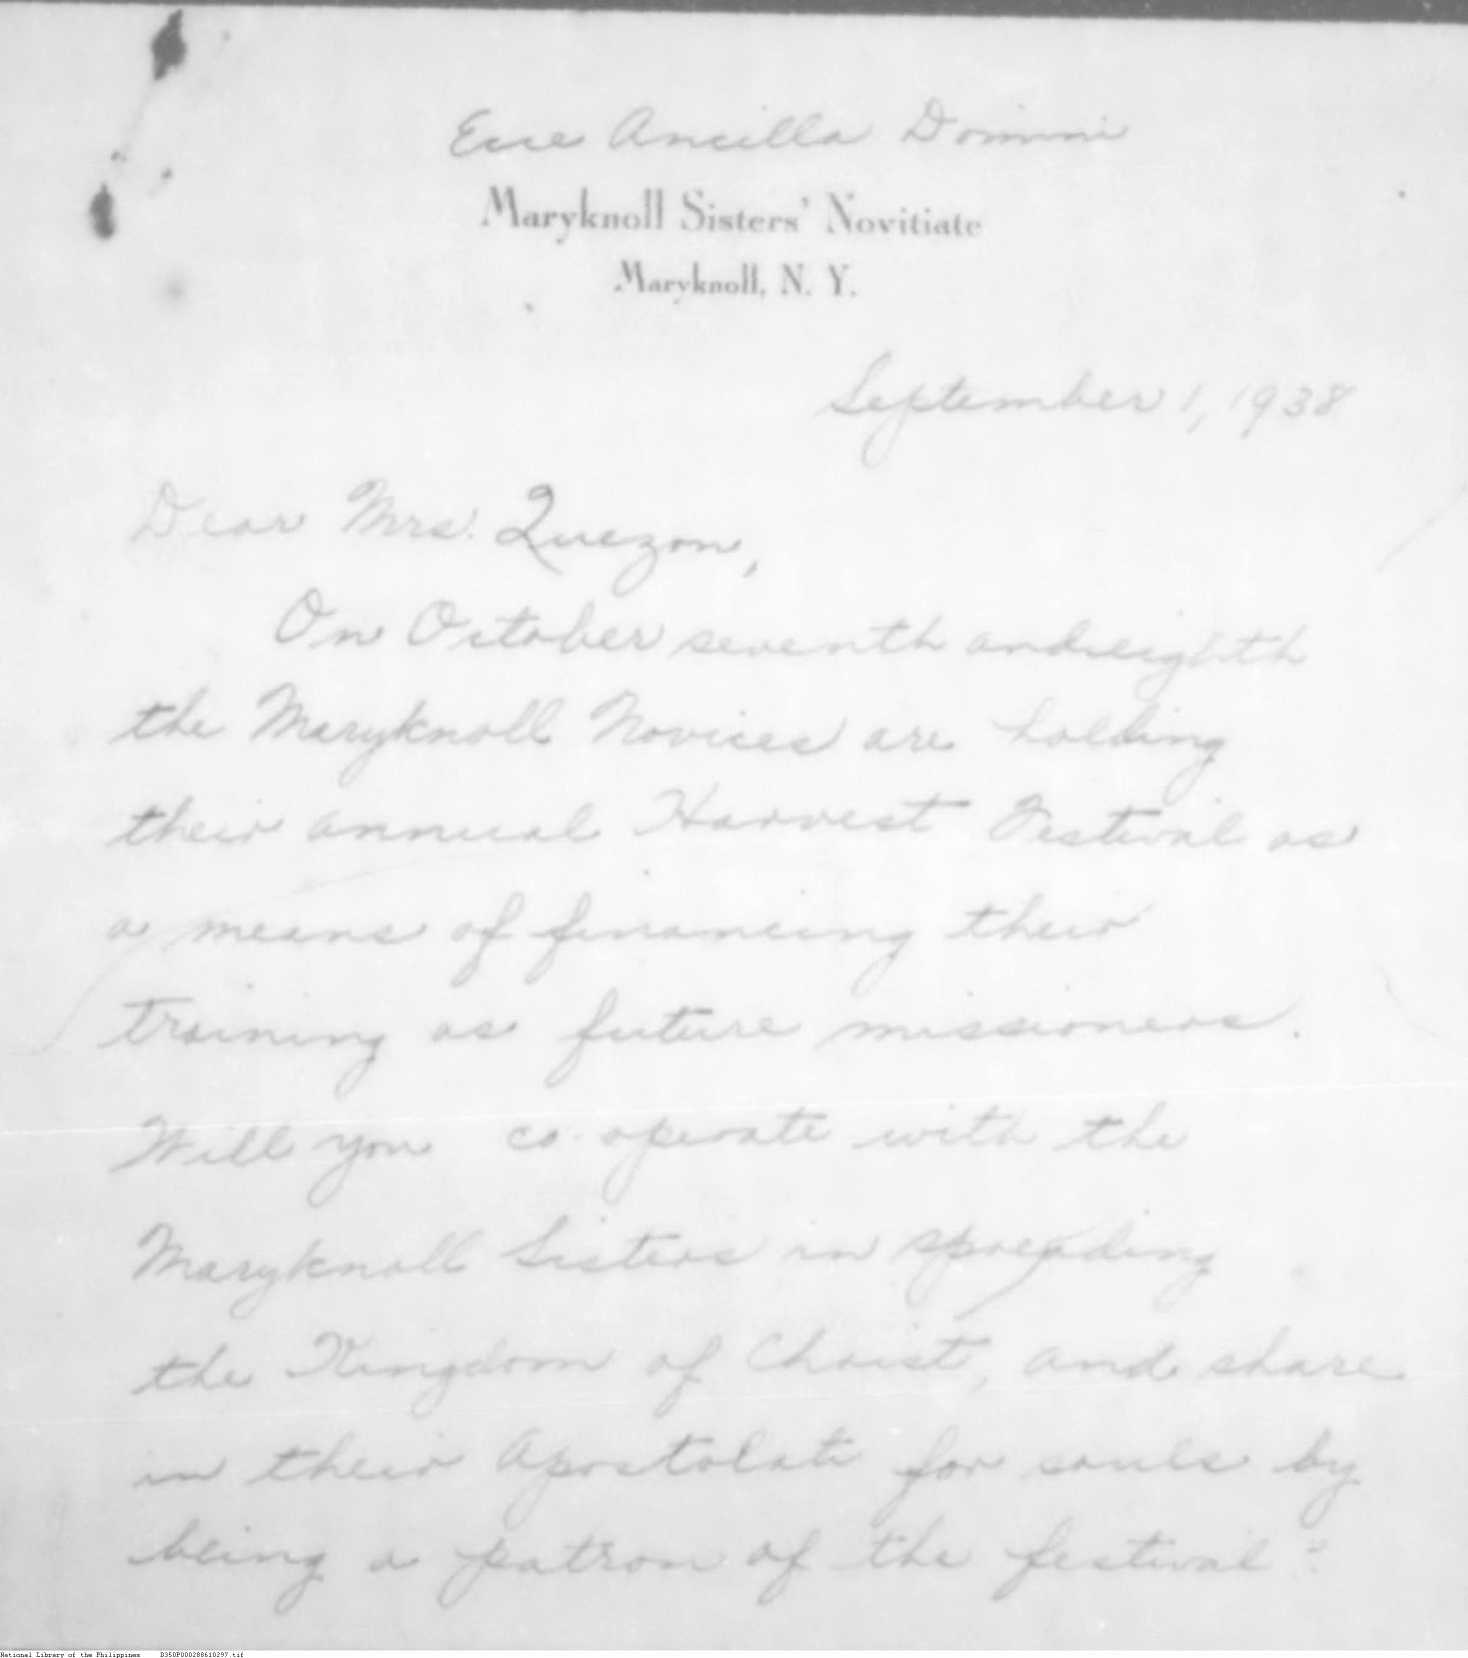 Ecce Ancilla Domini
Maryknoll Sisters' Novitiate
Maryknoll, N. Y.
September 1, 1938
Dear Mrs. Quezon,
On October seventh and eighth
the Maryknoll Novices are holding
their annual Harvest Festival as
a means of financing their
training as future missioners.
Will you co-operate with the
Maryknoll Sisters in spreading
the Kingdom of Christ, and share
in their Apostolate for souls by
being a patron of the festival?
National Library of the Philippines D350P000288610297.tif